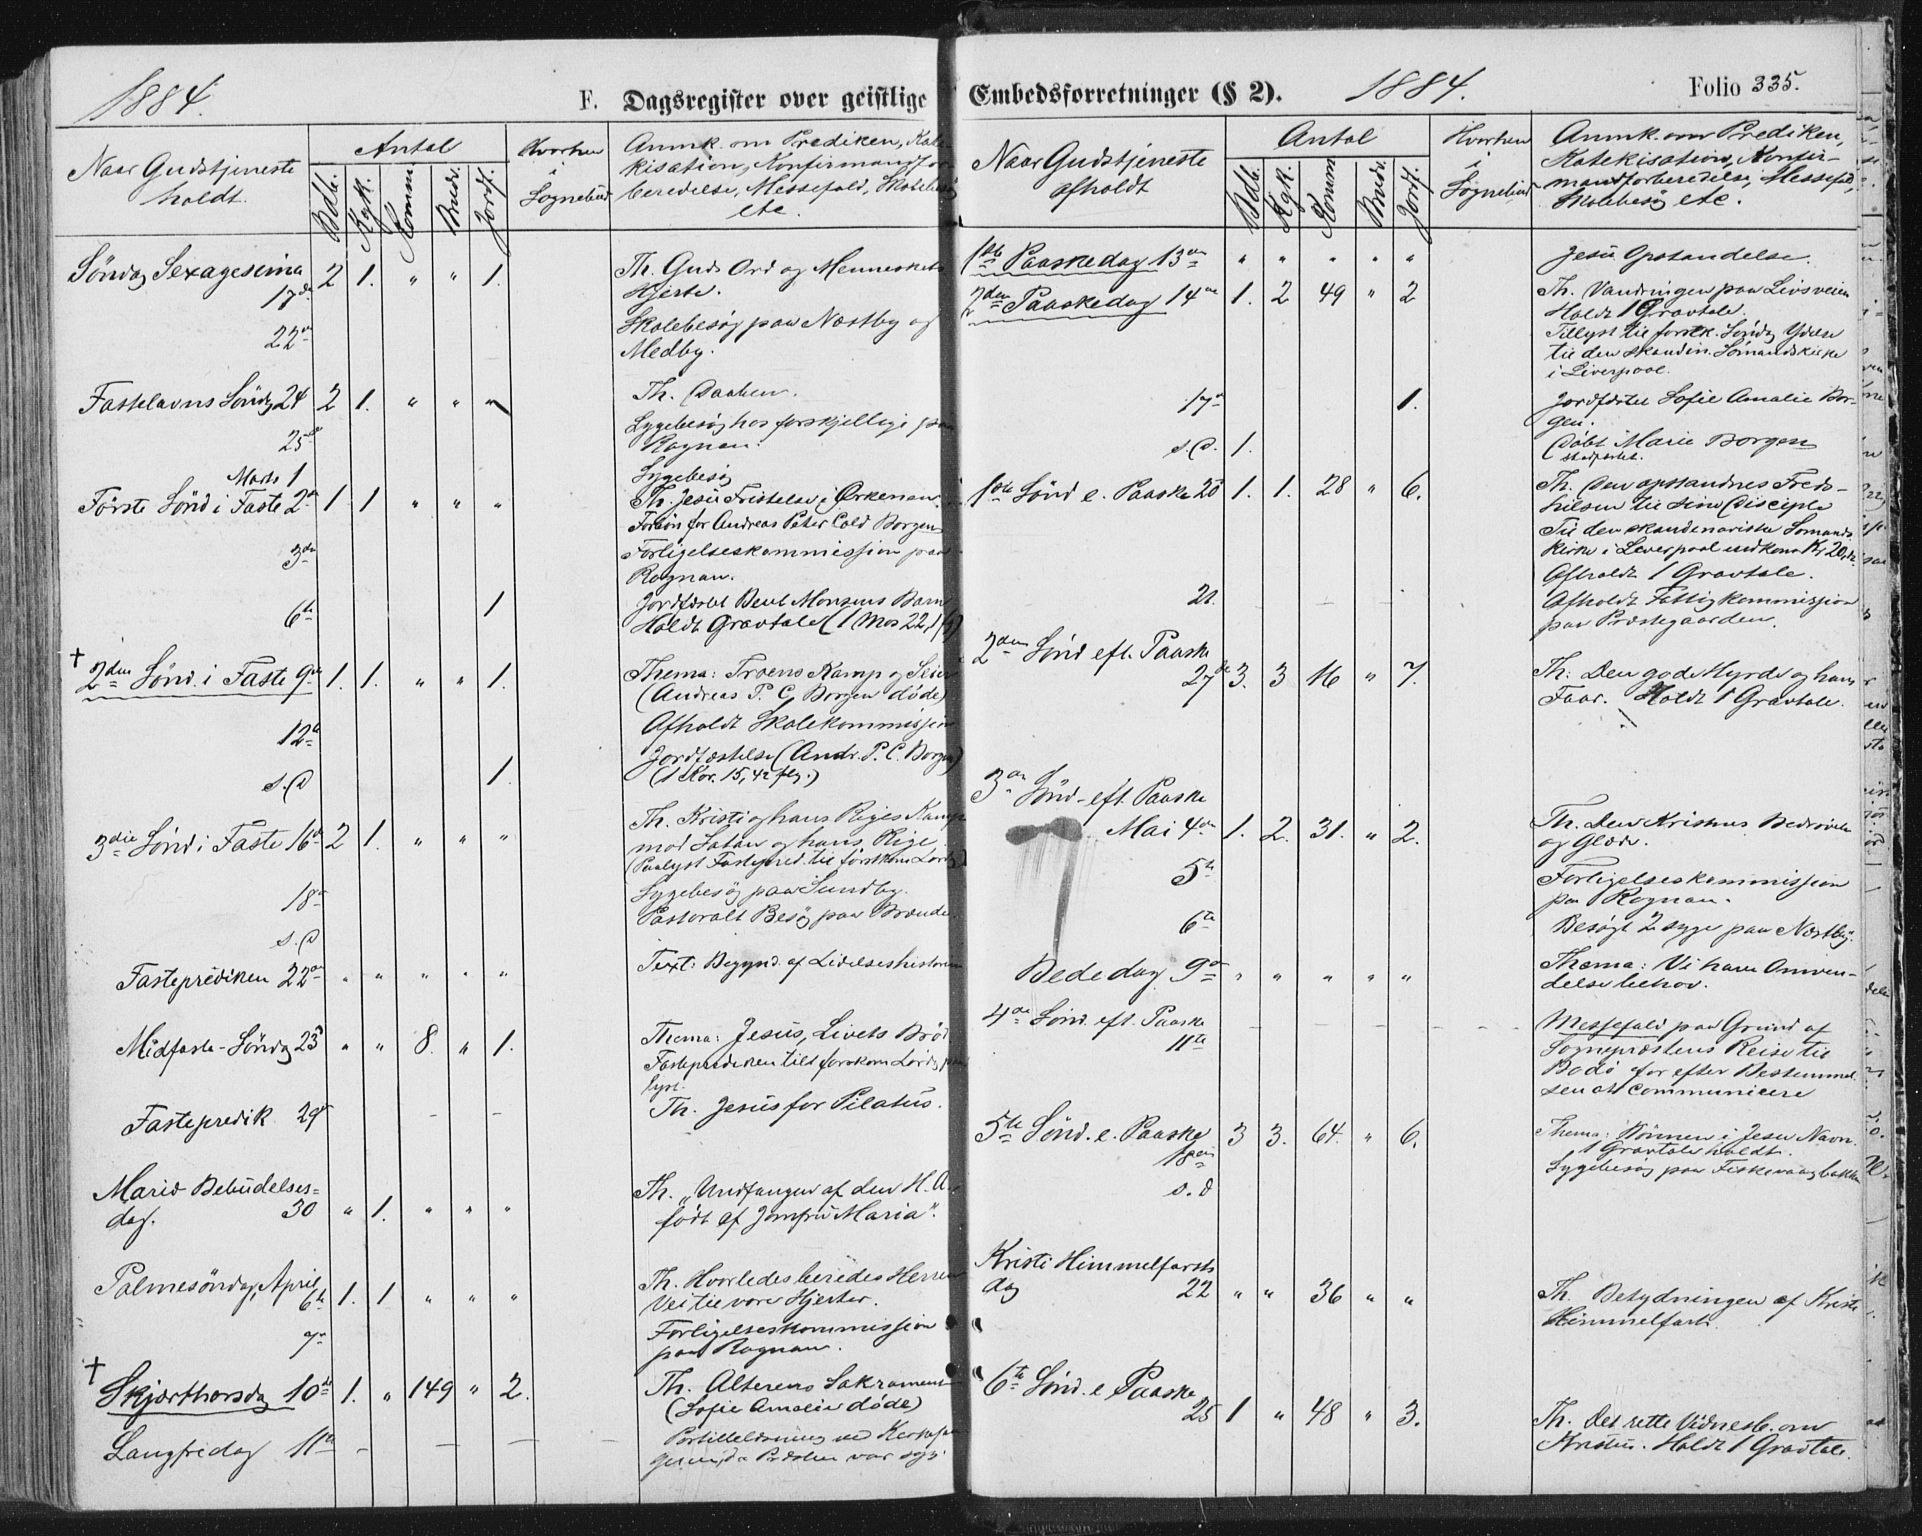 1884.
F. Dagsregister over geistlige
Naar Gudstjeneste
holdt.
Antal
Ddb.
Kgk.
Komm
Brudv.
Jordf.
Hvorhen
i
Sognebud
Anmk. om Prediken, Kate-
kisation, Konfirmantfor-
beredelse, Messefald, Skolebesøg
etc.
Søndag Sexagesima
17de 2 1. " " 1.
Th. Guds Ord og Menneskets
Hjerte.
22
Skolebesøg paa Næstby og
Medby.
Fastelavns Søndg 24 2 1. " " "
Th. Daaben.
25de
Sygebesøg hos forskjellige paa
Rognan.
Marts 1
Sygebesøg
Første Sønd i Faste 2den 1 1 " " "
Th. Jesu Fristelse i Ørkenen.
Forbøn for Andreas Peter Cold Borgen
3die
Forligelseskommission paa
Rognan.
6te 1
Jordfæstet Bent Monsens Barn
Holdt Gravtale (1 Mos 22,1
† 2den Sønd. i Faste 9de 1. 1. " " 1.
Thema: Troens Kamp og Seier
(Andreas P. C. Borgen døde)
12te
Afholdt Skolekommission
s.D 1.
Jordfæstelse (Andr. P. C. Borgen)
(1 Kor. 15, 42 flg.)
3die Sønd i Faste 16de 2 1. " " "
Th. Kristi og hans Riges Kamp
mod Satan og hans Rige,
(Paalyst Fastepred. til førstkom Lørdg)
18de
Sygebesøg paa Sundby.
s.D
Pastoralt Besøg paa Brænde
Fasteprediken 22de " " " " "
Text: Begynd. af Lidelseshistorien
Midfaste-Søndg 23de " " 8. " 1.
Thema: Jesus, Livets Brød
Fasteprediken til førskom Lørdg paa-
lyst.
Fastepredik 29de - -
Th. Jesus for Pilatus.
Mariæ Bebudelses=
dag. 30 " 1. " " "
Th. "Undfangen af den H. A.
født af Jomfru Maria".
Palmesøndag, April
6te 1. 1 " " "
Th. Hvorledes beredes Herren
Vei til vore Hjerter.
7de
Forligelseskommission
paa Rognan.
† Skjærthorsdag 10de 1. " 149 " 2.
Th. Alterens Sakrament
(Sofie Amalie døde)
Langfredag 11te - - -
ved Kirke
da var syg.
Embedsforretninger (§ 2).
1884.
Folio 335.
Naar Gudstjeneste
afholdt
Antal
Ddb.
Kgk.
Komm
Brudv.
Jordf.
Hvorhen
i
Sognebud
Anmk. om Prediken,
Katekisation, Konfir-
mantforberedelse, Messefald,
Skolebesøg etc.
1ste Paaskedag 13de " " " " "
Jesu Opstandelse.
2den Paaskedag 14de 1. 2 49 " 2
Th. Vandringen paa Livsveien
Holdt 1 Gravtale.
Tillyst til førstk. Søndg Ydelse
til den skandin. Sømandskirke
i Liverpool.
17de 1.
Jordfæstet Sofie Amalie Bor-
gen.
s.D. 1.
Døbt Marie Borgen
1ste Sønd e. Paaske 20 1. 1. 28 " 6.
Th. Den opstandnes Freds-
hilsen til sine Disciple
Til den skandinaviske Sømands
kirke i Leverpool indkom Kr 20,
Afholdt 1 Gravtale.
21. - - -
Afholdt Fattigkommission
paa Præstegaarden.
2den Sønd eft. Paaske
27de 3. 3 16 " 7.
Th: Den gode Hyrde og hans
Faar. Holdt 1 Gravtale.
3die Sønd. eft. Paaske
Mai 4de 1. 2. 31. " 2.
Th. Den Kristnes Bedrøvelse
og Glæde.
5te
Forligelseskommission
paa Rognan.
6te
Besøgt 2 syge paa Næstby.
Bededag 9de " " " " "
Thema: Vi have Omven-
delse behov.
4de Sønd. eft. Paaske
11te - - - - -
Messefald paa Grund af
Sognepræstens Reise til
Bodø for efter Bestemmel
sen at communicere
5te Sønd. e. Paaske
18de 3 3. 64. " 6.
Thema: Bønnen i Jesu Navn.
1 Gravtale holdt.
s.d
Sygebesøg paa Fiskevaagbakken
Kristi Himmelfarts
dag 22 " " 36 " "
Th. Betydningen af Kristi
Himmelfart.
6te Sønd. e Paaske
25 1 " 48 " 3.
Th. Det rette Vidnesb. om
Kristus. Holdt 1 Gravtale.